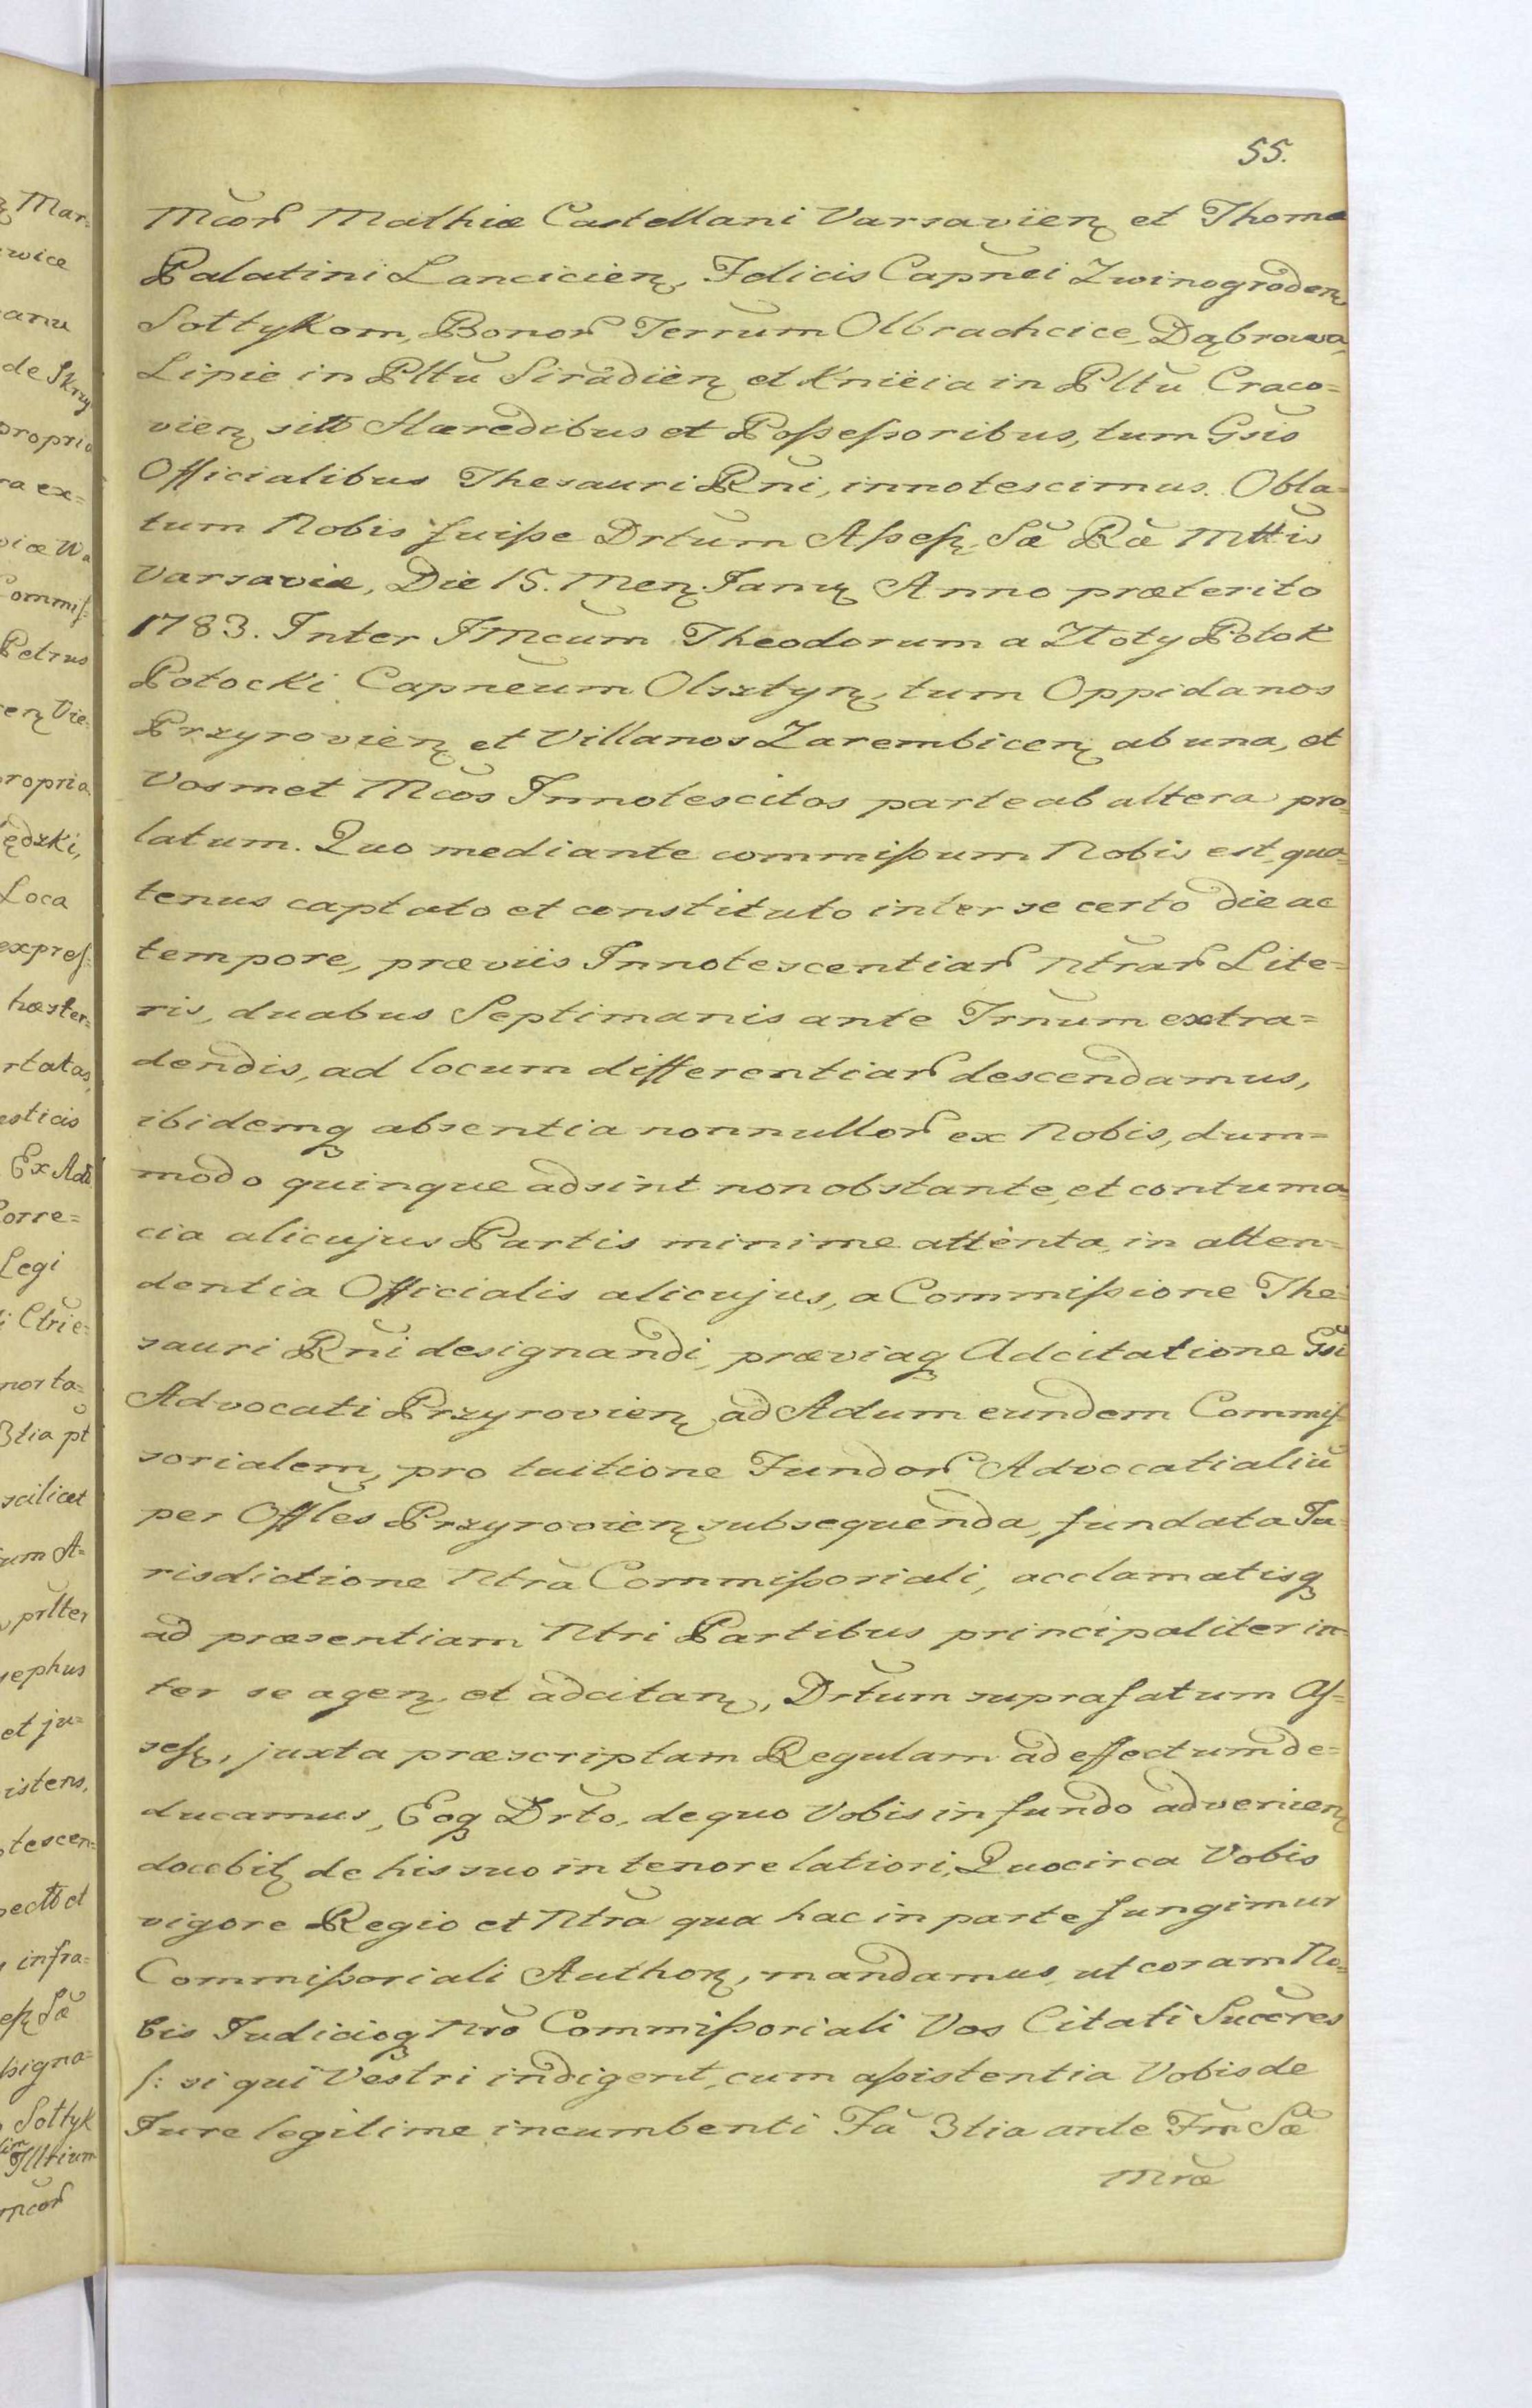 55.
Mcor̃ Mathiæ Castellani Varsavien̄ et Thomæ
Palatini Lancicien̄, Felicis Capnei Zwinogroden̄
Sołtykom, Bonor̃ Terrum Olbrachcice, Dąbrowa,
Lipie in Pltu Siradien̄ et Knieia in Pltũ Craco=
vien̄ sitt Hæredibus et Poſseſsoribus, tum Gsis
Officialibus Thesauri Rñi, innotescimus. Obla=
tum Nobis fuiſse Drtũm Aſseſs̨ Sæ̃ Ræ̃ Mttis
Varsaviæ, Die 15. Men̄ Janu̧ Anno præterito
1783. Inter JMcũm Theodorum a Złoty Potok
Potocki Capnẽum Olsztyn̄, tum Oppidanos
Przyrovien̄ et Villanos Zarembicen̄ ab una, et
Vosmet Mcõs Innotescitos parte ab altera pro=
latum. Quo mediante commiſsum Nobis est, qua=
tenus captato et constituto inter se certo die ac
tempore, præviis Innotescentiar̃ Ntrar̃ Lite=
ris, duabus Septimanis ante Trnũm extra=
dendis, ad locum differentiar̃ descendamus,
ibidemq̨ absentia nonnullor̃ ex Nobis, dum=
modo quinque adsint non obstante, et contuma=
cia alicujus Partis minime attenta, in atten=
dentia Officialis alicujus, a Commiſsione The=
sauri Rñi designandi, præviaq̨ Adcitatione Gsi
Advocati Przyrovien̄ ad Actum eundem Commiſ=
sorialem, pro tuitione Fundor̃ Advocatialiũ
per Offles Przyrovien̄ subsequenda, fundata Ju=
risdictione Ntrã Commiſsoriali, acclamatisq̨
ad præsentiam Ntri Partibus principaliter in=
ter se agen̄ et adcitan̄, Drtũm suprafatum Aſ=
seſs̨, juxta præscriptam Regulam ad effectum de=
ducamus, Eoq̨ Drto, de quo Vobis in fundo advenien̄
docebit̨ de his suo in tenore latiori. Quocirca Vobis
vigore Regio et Ntrã qua hac in parte fungimur
Commiſsoriali Author̨, mandamus, ut coram No=
bis Judicioq̨ Nrõ Commiſsoriali Vos Citati Succres
/: si qui Vestri indigent, cum aſsistentia Vobis de
Jure legitime incumbenti Fã 3tia ante Fm̃ Sæ̃
Mræ̃